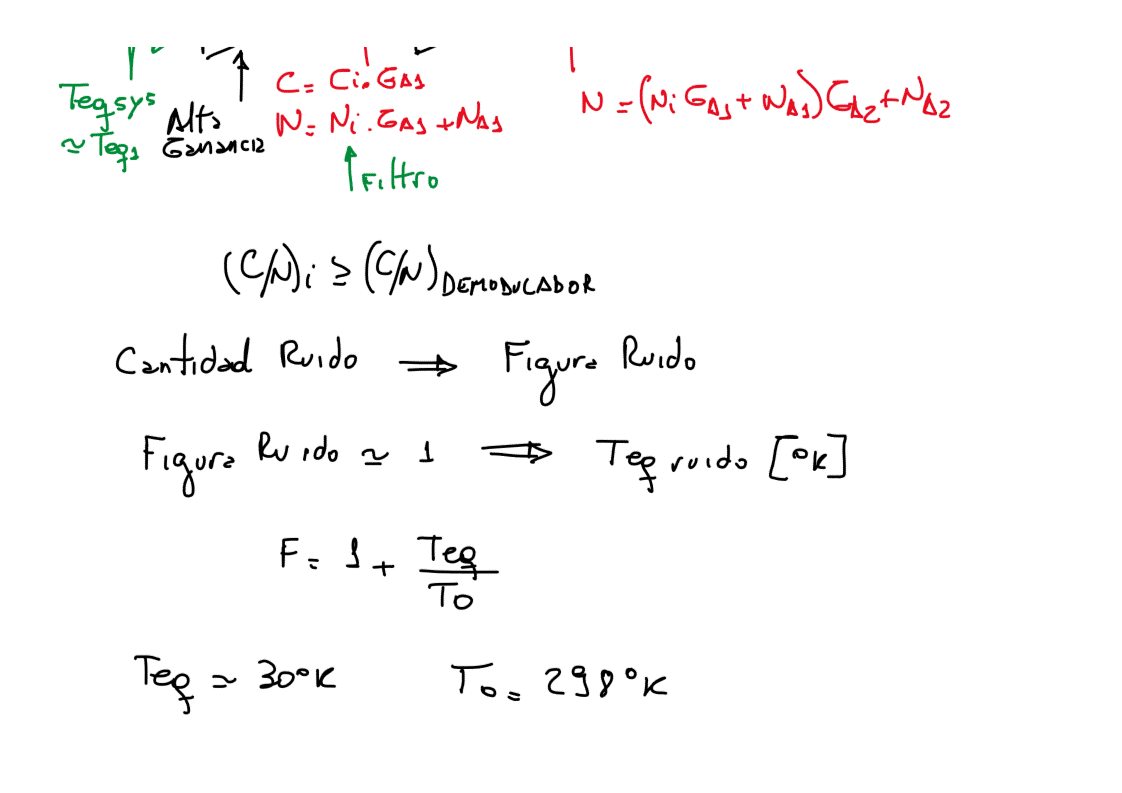 Teq sys
≃ Teq1
Alta
Ganancia
C = Ci . GA1
N = Ni . GA1 + NA1
Filtro
N = (Ni GA1 + NA1) GA2 + NA2
(C/N)i ≥ (C/N) DEMODUCADOR
Cantidad Ruido ⟹ Figura Ruido
Figura Ruido ≃ 1 ⟹ Teq ruido [°K]
F = 1 + Teq / To
Teq ≃ 30°K To = 298°K